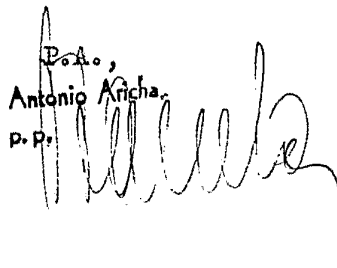 P.A.,
Antonio Aricha.
p.p.